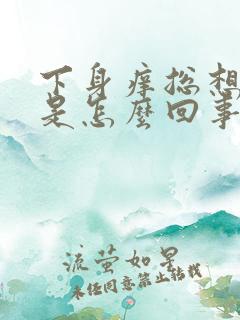 下身痒总想
是怎麼回事
流萤如星
未经同意禁止转载